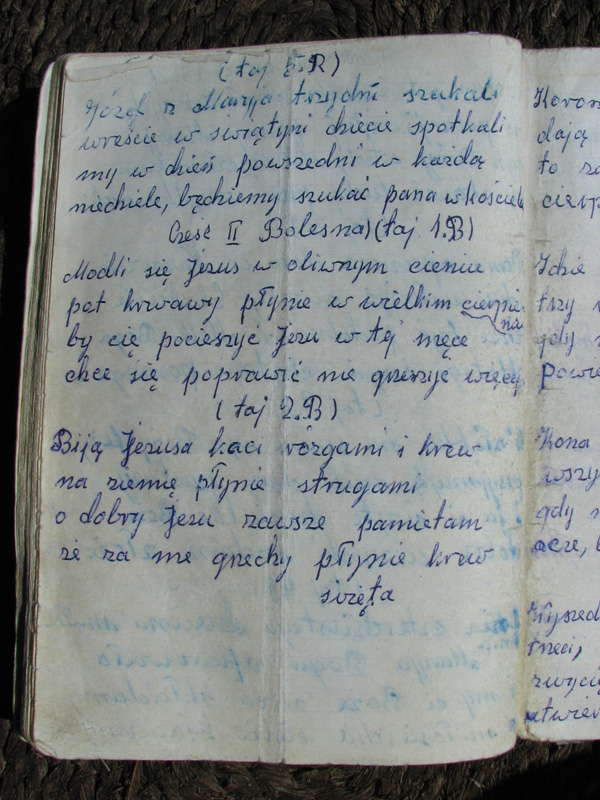 (taj 5.R)
Józef z Maryją trzydni szukali
wreście w swiątyni dziecie spotkali
my w dzień powszedni w każdą
niedziele, będziemy szukać pana w kościele
Cześć II Bolesna) (taj. 1.B)
Modli się Jezus w oliwnym cieniu
pot krwawy płynie w wielkim cierpie
niu
by cię pocieszyć Jezu w tej męce
chce się poprawić nie grzeszyć więcej
(taj 2.B)
Biją Jezusa kaci rózgami i krew
na ziemię płynie strugami
o dobry Jezu zawsze pamietam
że za me grzechy płynie krew
swięta
Koron
dają
to za
cierp
Idzie
trzy
gdy
Powie
Kona
wszy
gdy
trzeci,
zwycię
utwier